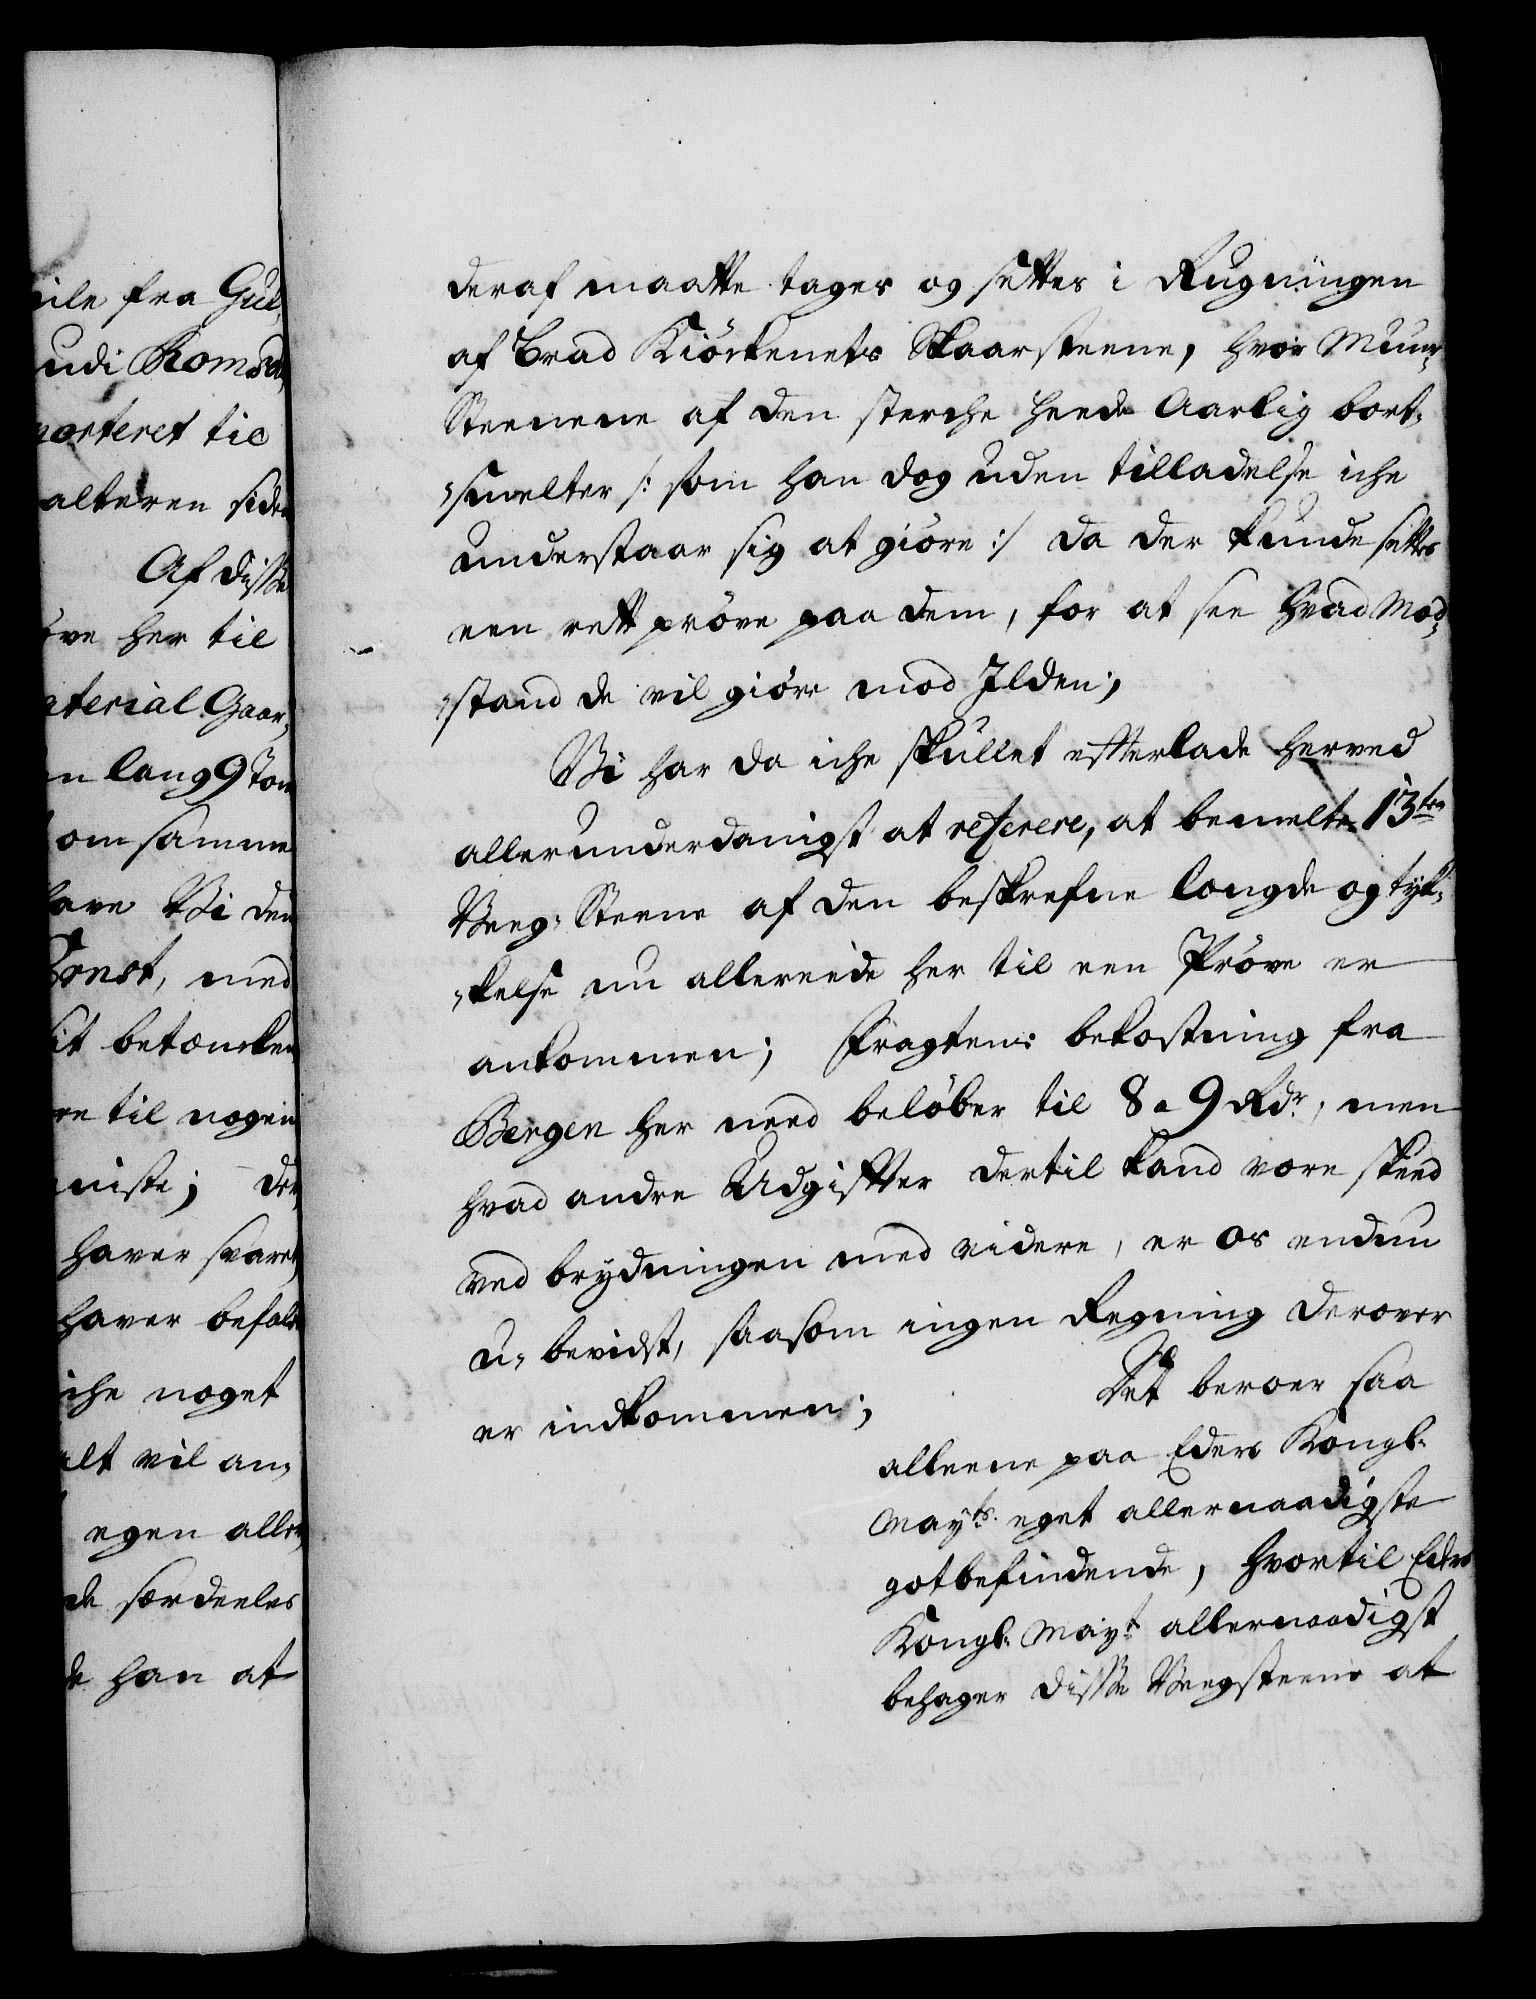 ile fra Gul,
udi Romsd,
porteret til
alteren siden
Af disse
øve her til
aterial Gaar,
n lang 9 Tom
om samme
have Vi den
Ernst, med
sit betæncken
re til nogen
niste; der
haver svaret
haver befal
iche noget
alt vil an,
egen aller,
de særdeeles
de han at
deraf maatte tages og settes i Rugningen
af brad Kiöckenets Skaarsteene, hvor Muur¬
Steenene af den sterche heede Aarlig bort¬
smelter /: som han dog uden tilladelse iche
understaar sig at giöre :/ da der kunde settes
een rett pröve paa dem, for at see hvad Mod¬
stand de vil giöre mod Jlden;
Vi har da iche skullet efterlade herved
allerunderdanigst at referere, at bemelte 13ten
Veeg¬Steene af den beskrefne længde og tyk¬
kelse nu allereede her til een Pröve er
ankommen; Fragtens bekostning fra
Bergen her need belöber til 8 a 9 Rdr, men
hvad andre Udgifter dertil kand være skeed
ved brydningen med videre, er os endnu
u¬bevidst, saasom ingen Regning derover
er indkommen;
Det beroer saa
alleene paa Eders Kongl:
Mayts eget allernaadigste
gotbefindende, hvortil Eders
Kongl: Mayt allernaadigst
behager disse Veegsteene at